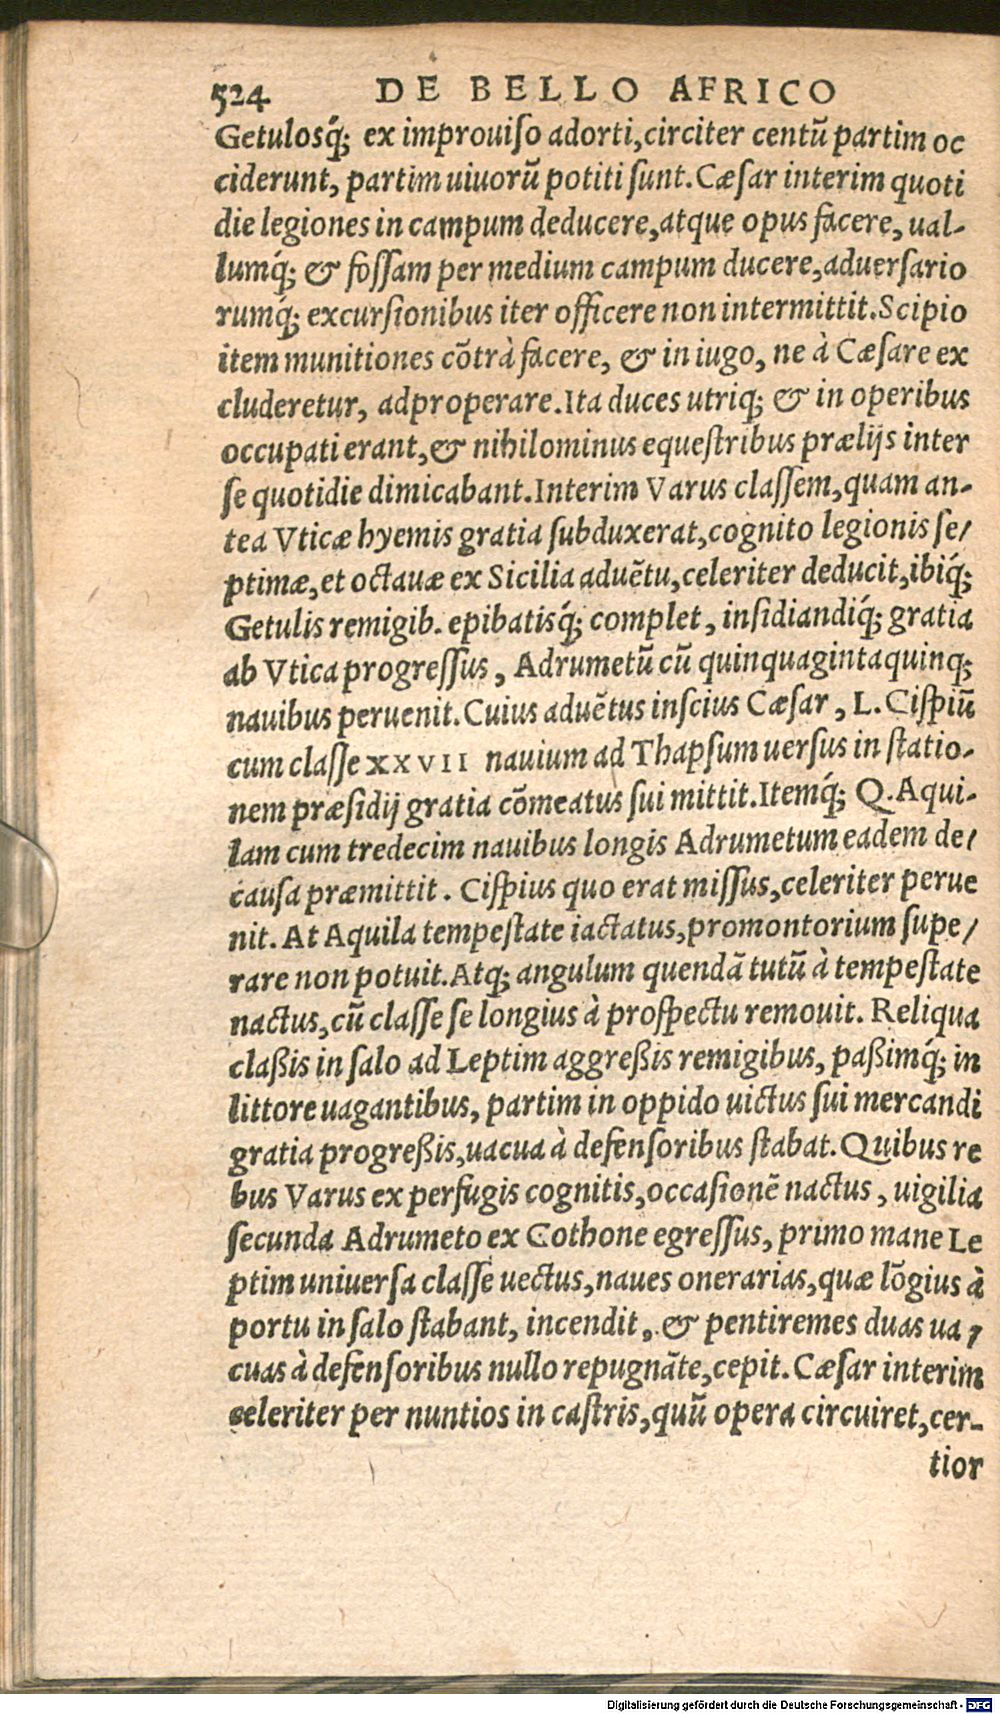 524 DE BELLO AFRICO
Getulosq́; ex improuiſo adorti,circiter centũ partim oc
ciderunt, partim uiuorũ potiti ſunt.Cæſar interim quoti
die legiones in campum deducere,atque opus facere, ual-
lumq́; & foſſam per medium campum ducere,aduerſario
rumq́; excurſionibus iter officere non intermittit.Scipio
item munitiones cõtrà facere, & in iugo, ne à Cæſare ex
cluderetur, adproperare.Ita duces utriq; & in operibus
occupati erant,& nihilominus equeſtribus prælijs inter
ſe quotidie dimicabant.Interim Varus claſſem,quam an-
tea Vticæ hyemis gratia ſubduxerat,cognito legionis ſe/
ptimæ,et octauæ ex Sicilia aduẽtu,celeriter deducit,ibiq́;
Getulis remigib. epibatisq́; complet, inſidiandiq́; gratia
ab Vtica progreſſus, Adrumetũ cũ quinquagintaquinq;
nauibus peruenit.Cuius aduẽtus inſcius Cæſar, L. Ciſpiũ
cum claſſe XXVII nauium ad Thapſum uerſus in ſtatio-
nem præſidij gratia cõmeatus ſui mittit.Itemq́; Q.Aqui-
lam cum tredecim nauibus longis Adrumetum eadem de/
cauſa præmittit. Ciſpius quo erat miſſus,celeriter perue
nit. At Aquila tempeſtate iactatus,promontorium ſupe/
rare non potuit.Atq; angulum quendã tutũ à tempeſtate
nactus,cũ claſſe ſe longius à proſpectu remouit. Reliqua
claßis in ſalo ad Leptim aggreßis remigibus, paßimq́; in
littore uagantibus, partim in oppido uictus ſui mercandi
gratia progreßis,uacua à defenſoribus ſtabat.Quibus re
bus Varus ex perfugis cognitis,occaſionẽ nactus, uigilia
ſecunda Adrumeto ex Cothone egreſſus, primo mane Le
ptim uniuerſa claſſe uectus,naues onerarias,quæ lõgius à
portu in ſalo ſtabant, incendit, & pentiremes duas ua/
cuas à defenſoribus nullo repugnãte,cepit.Cæſar interim
celeriter per nuntios in caſtris,quũ opera circuiret,cer-
tior
Digitalisierung gefördert durch die Deutsche Forschungsgemeinschaft - DFG